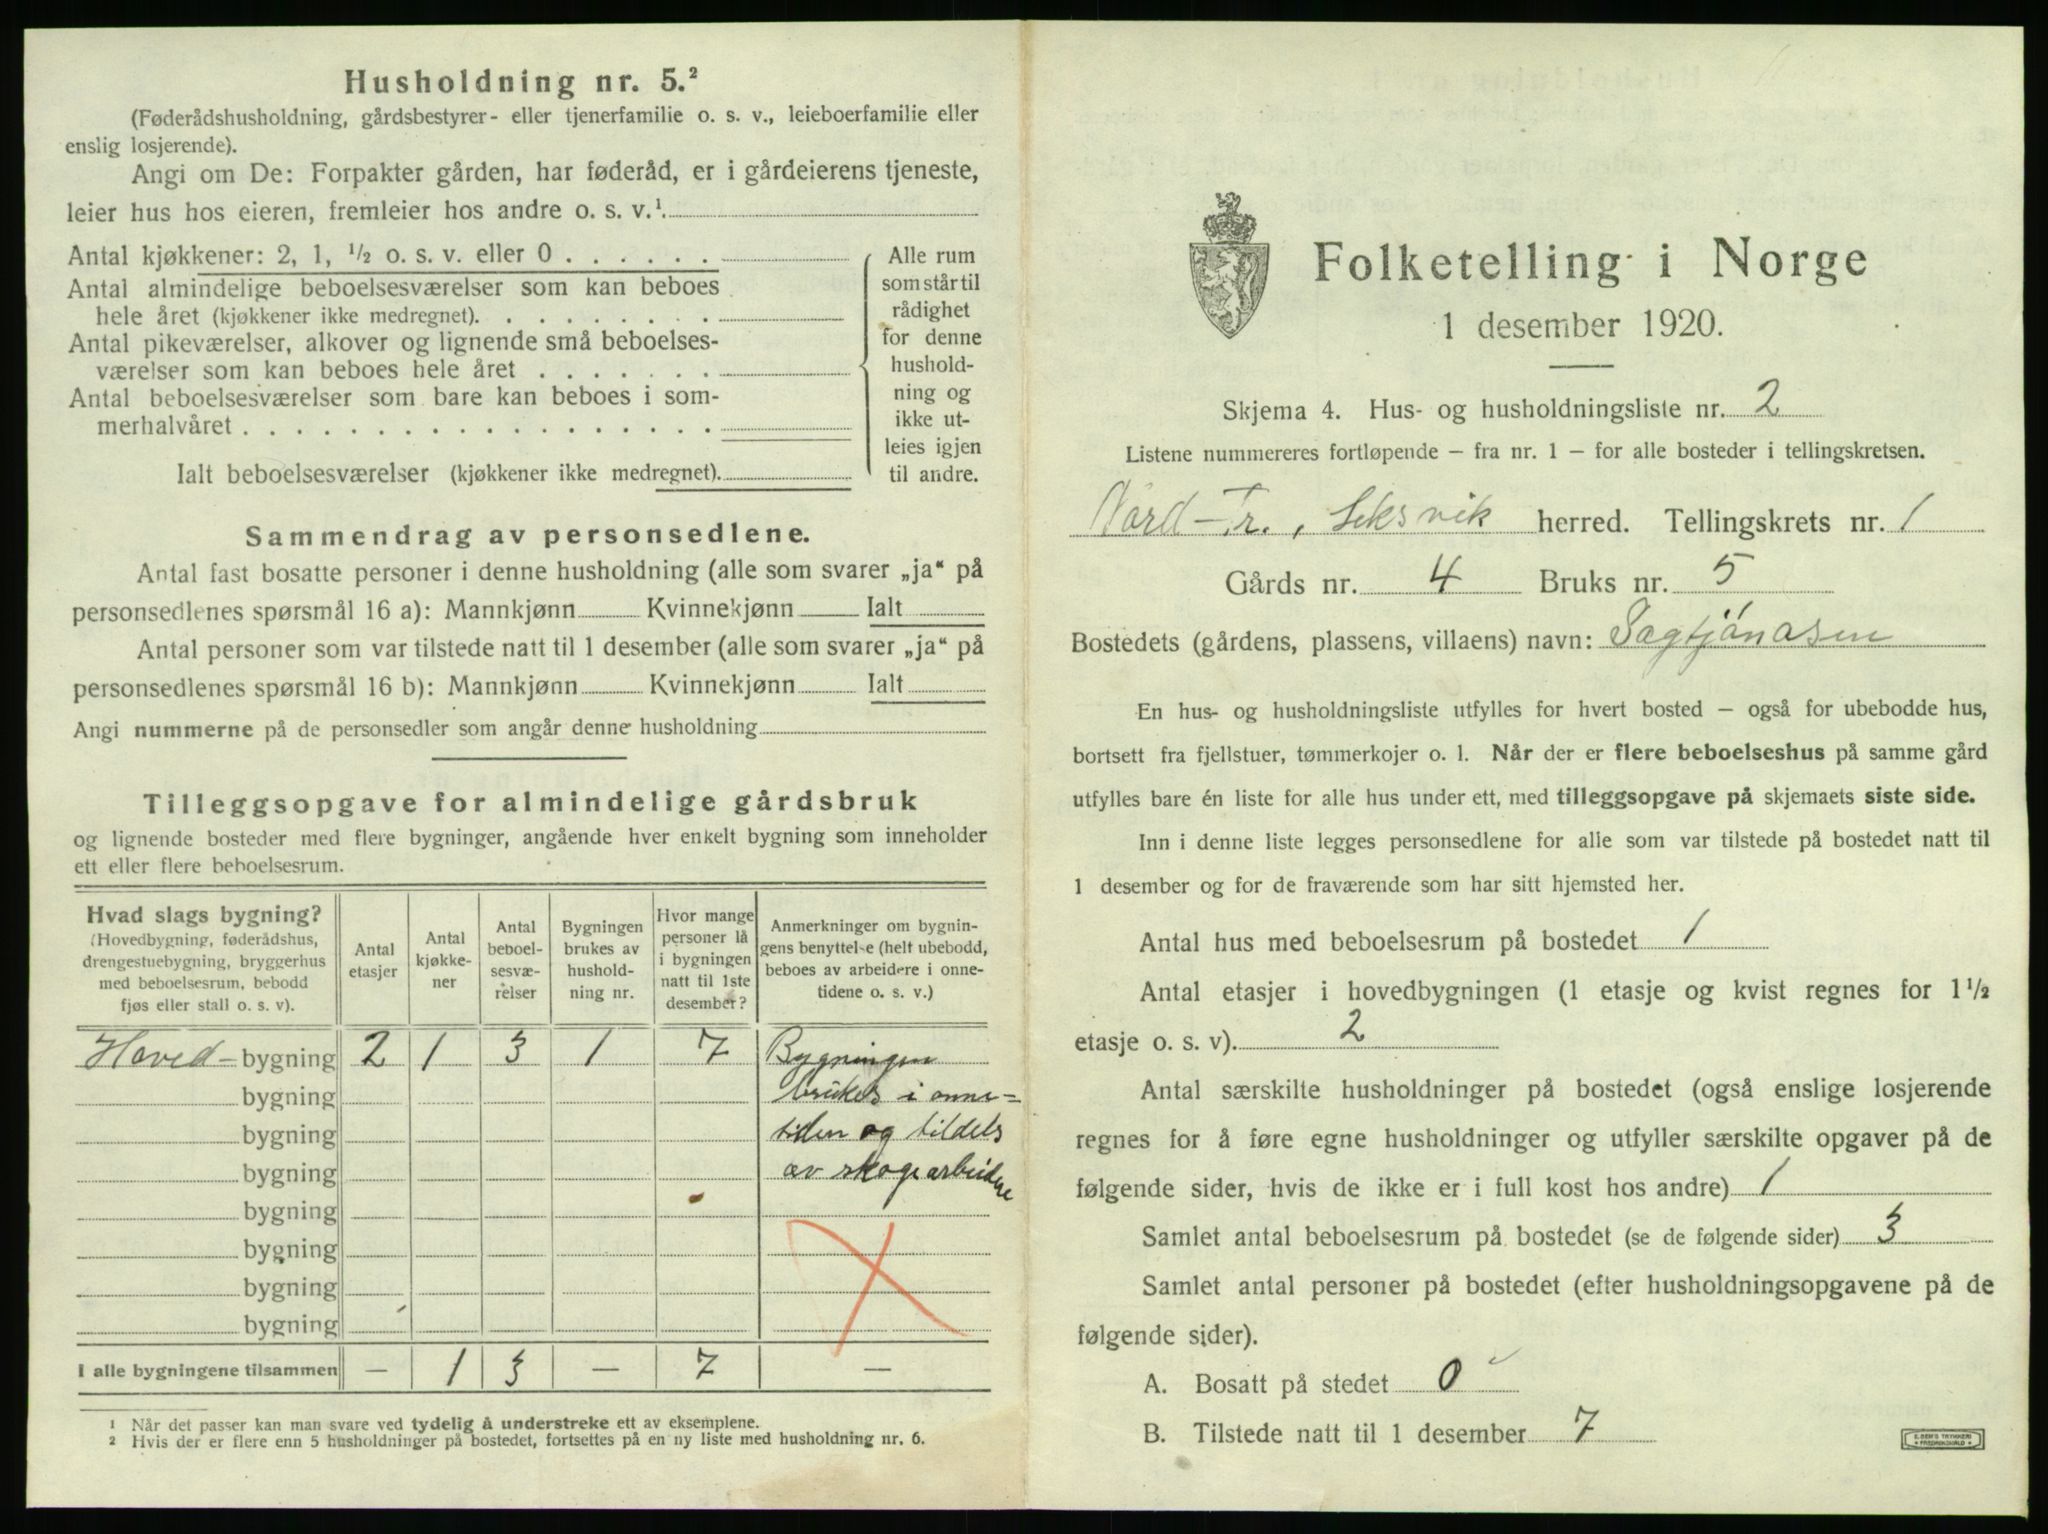 Husholdning nr. 5.²
(Føderådshusholdning, gårdsbestyrer- eller tjenerfamilie o. s. v., leieboerfamilie eller
enslig losjerende).
Angi om De: Forpakter gården, har føderåd, er i gårdeierens tjeneste,
leier hus hos eieren, fremleier hos andre o. s. v.¹
Antal kjøkkener: 2, 1, ½ o. s. v. eller 0
Antal almindelige beboelsesværelser som kan beboes
hele året (kjøkkener ikke medregnet).
Antal pikeværelser, alkover og lignende små beboelses-
værelser som kan beboes hele året
Antal beboelsesværelser som bare kan beboes i som-
merhalvåret
Ialt beboelsesværelser (kjøkkener ikke medregnet)
Alle rum
som står til
rådighet
for denne
hushold-
ning og
ikke ut-
leies igjen
til andre.
Sammendrag av personsedlene.
Antal fast bosatte personer i denne husholdning (alle som svarer „ja“ på
personsedlenes spørsmål 16 a): Mannkjønn Kvinnekjønn Ialt
Antal personer som var tilstede natt til 1 desember (alle som svarer „ja“ på
personsedlenes spørsmål 16 b): Mannkjønn Kvinnekjønn Ialt
Angi nummerne på de personsedler som angår denne husholdning
Tilleggsopgave for almindelige gårdsbruk
og lignende bosteder med flere bygninger, angående hver enkelt bygning som inneholder
ett eller flere beboelsesrum.
Hvad slags bygning?
(Hovedbygning, føderådshus,
drengestuebygning, bryggerhus
med beboelsesrum, bebodd
fjøs eller stall o. s. v).
Antal
etasjer
Antal
kjøkke-
ner
Antal
beboel-
sesvæ-
relser
Bygningen
brukes av
hushold-
ning nr.
Hvor mange
personer lå
i bygningen
natt til 1ste
desember?
Anmerkninger om bygnin-
gens benyttelse (helt ubebodd,
beboes av arbeidere i onne-
tidene o. s. v.)
Hoved-bygning 2 1 3 1 7 Bygningen
bygning brukes i onne-
bygning tiden og tildels
bygning av skogsarbeidere
bygning
bygning
bygning
bygning
I alle bygningene tilsammen — 1 3 — 7 —
¹ Når det passer kan man svare ved tydelig å understreke ett av eksemplene.
² Hvis der er flere enn 5 husholdninger på bostedet, fortsettes på en ny liste med husholdning nr. 6.
Folketelling i Norge
1 desember 1920.
Skjema 4. Hus- og husholdningsliste nr. 2
Listene nummereres fortløpende – fra nr. 1 – for alle bosteder i tellingskretsen.
Nord-Tr., Leksvik herred. Tellingskrets nr. 1
Gårds nr. 4 Bruks nr. 5
Bostedets (gårdens, plassens, villaens) navn: Sagtjønåsen
En hus- og husholdningsliste utfylles for hvert bosted – også for ubebodde hus,
bortsett fra fjellstuer, tømmerkojer o. l. Når der er flere beboelseshus på samme gård
utfylles bare én liste for alle hus under ett, med tilleggsopgave på skjemaets siste side.
Inn i denne liste legges personsedlene for alle som var tilstede på bostedet natt til
1 desember og for de fraværende som har sitt hjemsted her.
Antal hus med beboelsesrum på bostedet 1
Antal etasjer i hovedbygningen (1 etasje og kvist regnes for 1½
etasje o. s. v). 2
Antal særskilte husholdninger på bostedet (også enslige losjerende
regnes for å føre egne husholdninger og utfyller særskilte opgaver på de
følgende sider, hvis de ikke er i full kost hos andre) 1
Samlet antal beboelsesrum på bostedet (se de følgende sider) 3
Samlet antal personer på bostedet (efter husholdningsopgavene på de
følgende sider).
A. Bosatt på stedet 0
B. Tilstede natt til 1 desember 7